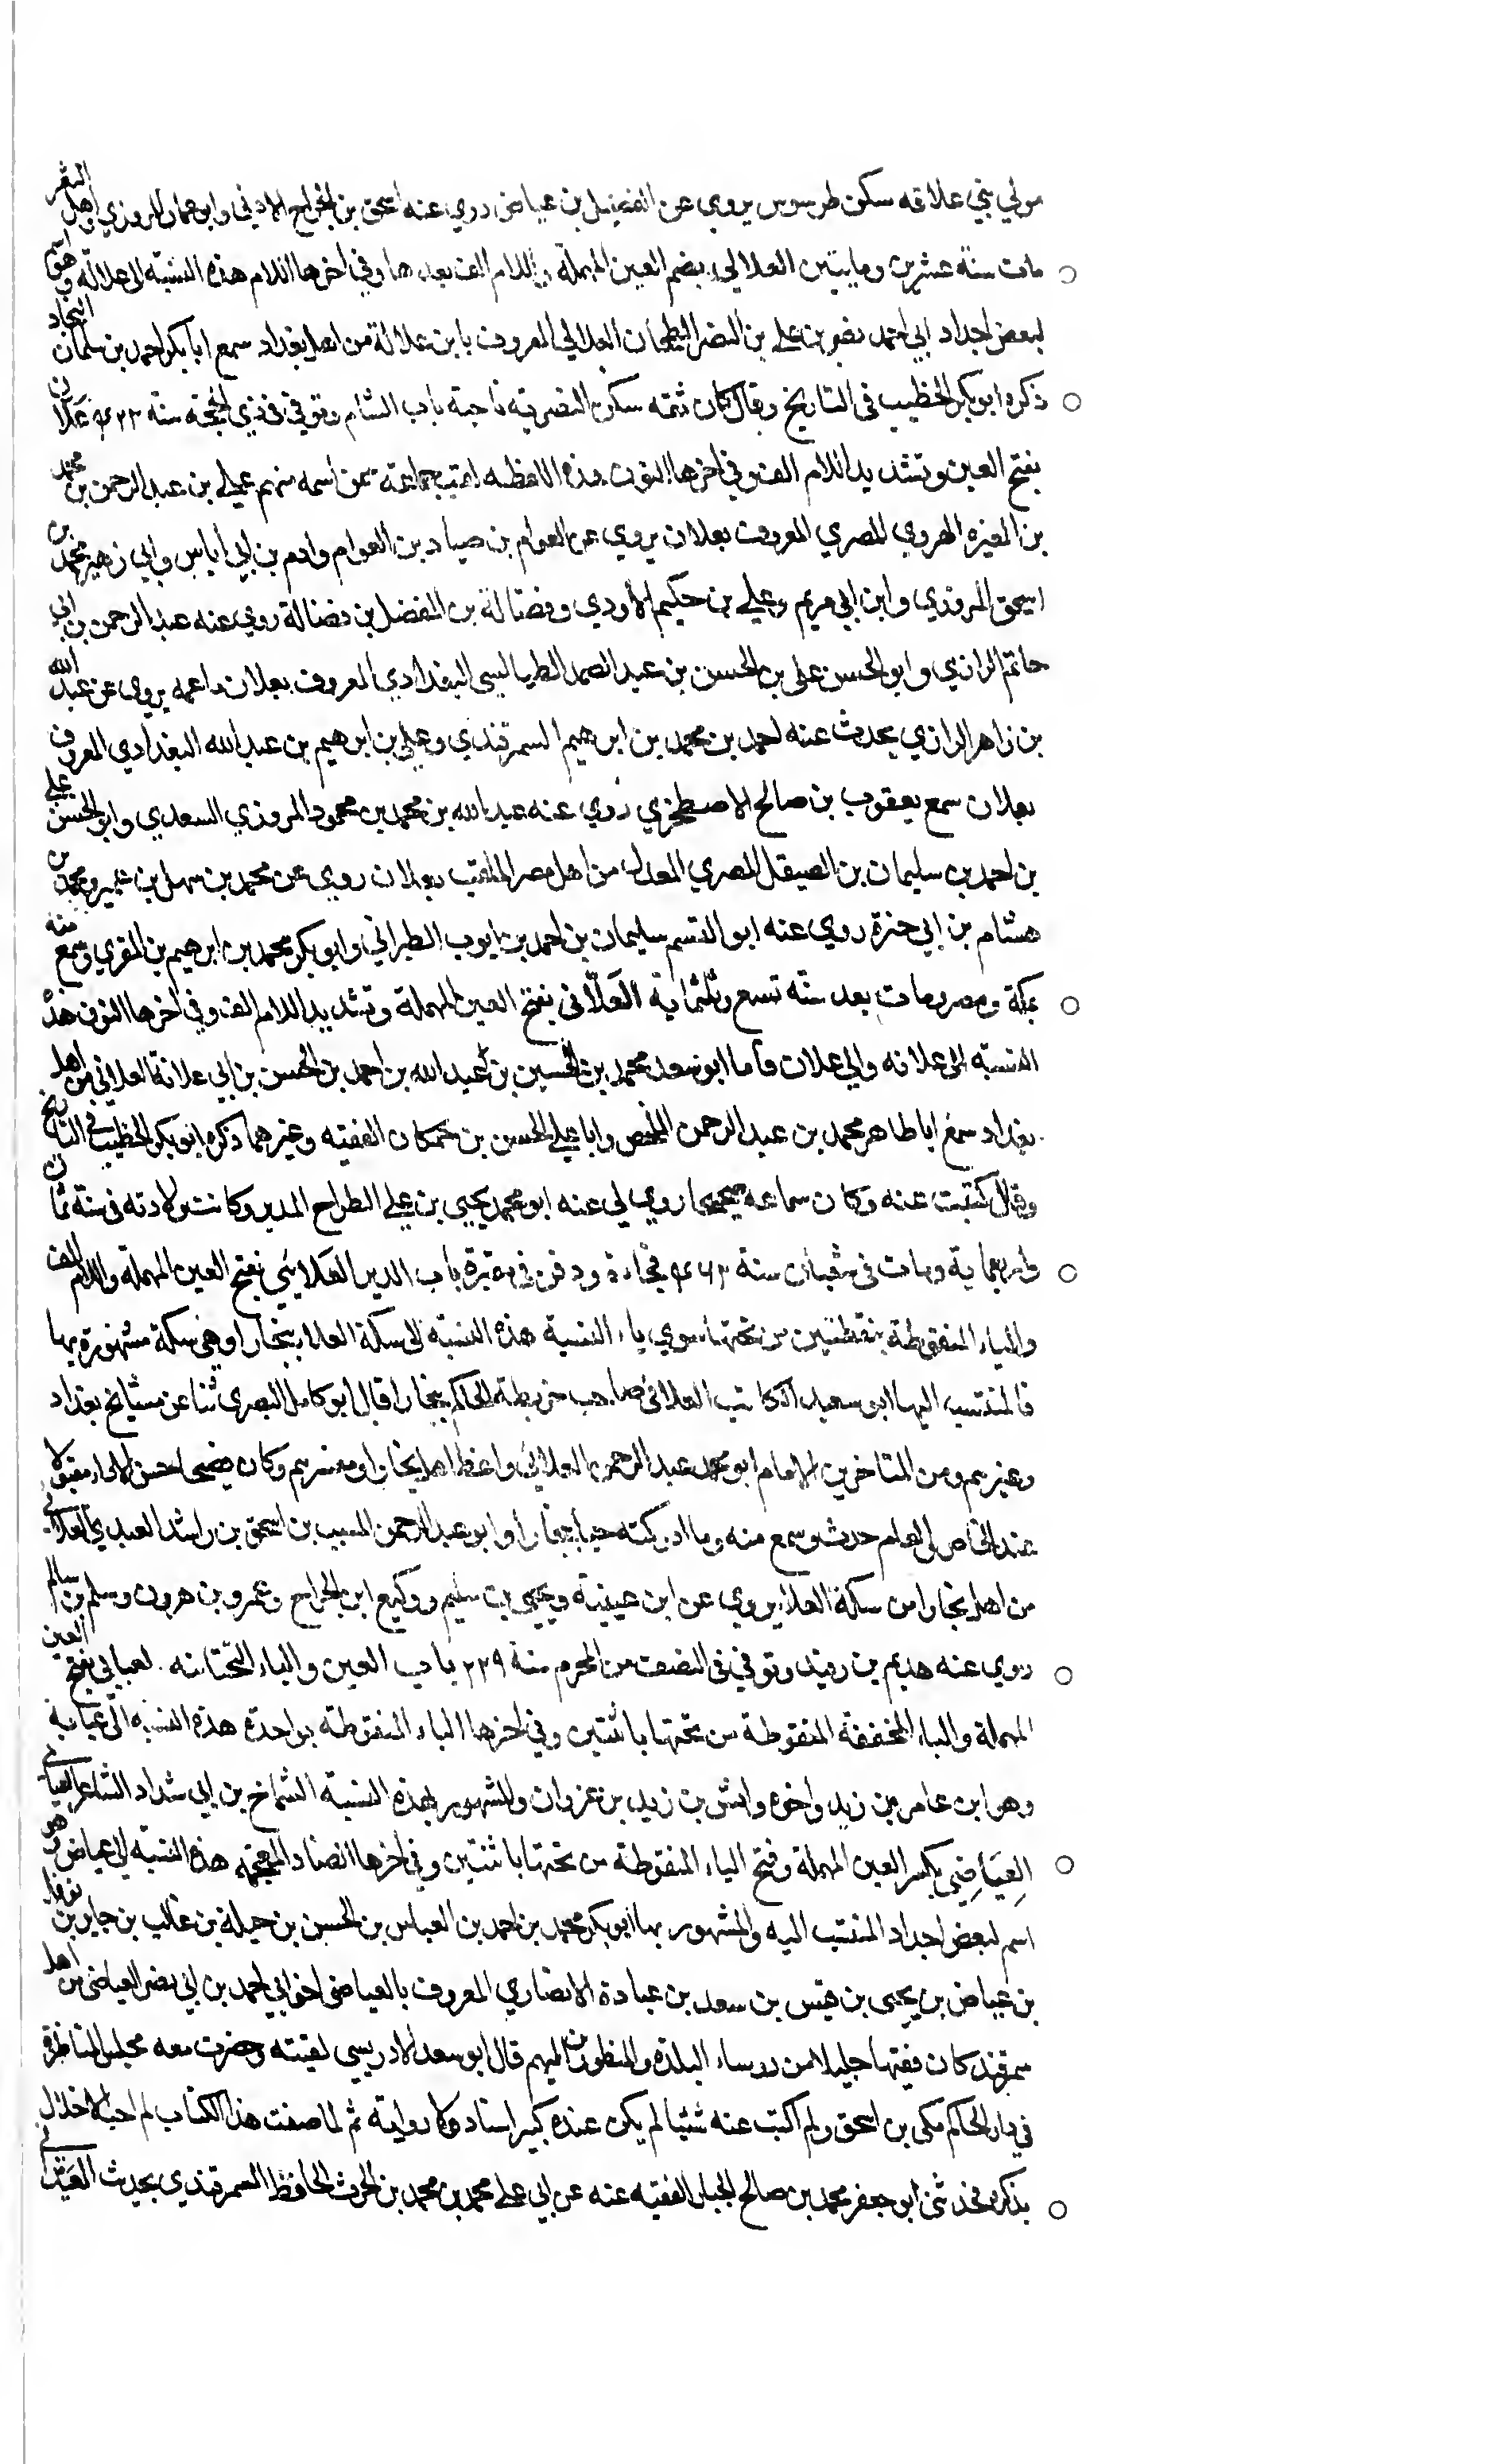 مولي بني علاقه سكن طرسوس يروي عن الفضيل بن عياض روي عنه اسحق بن الجراح الاذني وابو عمار المروزي واهل الثغر
مات سنة عشرين ومايتين العلالي بضم العين المهملة واللام الف بعدها وفي اخرها اللام هذه النسبة الى علالة وهو اسم
لبعض اجداد ابي احمد نصر بن علي بن النضر الطحان العلالي المعروف بابن علالة من اهل بغداد سمع ابا بكر احمد بن سلمان النجاد
ذكره ابو بكر الخطيب في التاريخ وقال كان ثقة سكن النصرية ناحية باب الشام وتوفي في ذي الحجة سنة ٤٢٣ علان
بفتح العين وتشديد اللام الف وفي اخرها النون هذه اللفظه لقب جماعة ممن اسمه منهم علي بن عبد الرحمن بن محمد
بن المغيره الهروي المصري المعروف بعلان يروي عن العوام بن صياد بن العوام وادم بن ابي اياس وابي زهير محمد بن
اسحق المروزي وابن ابي مريم وعلي بن حكيم الاودي وفضالة بن المفضل بن فضالة روي عنه عبد الرحمن بن ابي
حاتم الرازي وابو الحسن علي بن الحسن بن عبد الصمد الطيالسي البغدادي المعروف بعلان ماعمه يروي عن عبد الله
بن زاهر الرازي يحدث عنه احمد بن محمد بن ابرهيم السمرقندي وعلي بن ابرهيم بن عبد الله البغدادي المعروف
بعلان سمع يعقوب بن صالح الاصطخري روي عنه عبد الله بن محمد بن محمود المروزي السعدي وابو الحسن علي
بن احمد بن سليمان بن الصيقل المصري المعدل من اهل مصر الملقب بعلان روي عن محمد بن سهل بن عمير ومحمد بن
هشام بن ابي خيرة روي عنه ابو القسم سليمان بن احمد بن ايوب الطبراني وابو بكر محمد بن ابرهيم بن المقري وسمع منه
بمكة ومصر ومات بعد سنة تسع وثلثماية العلاني بفتح العين المهملة وتشديد اللام الف وفي اخرها النون هذه
النسبة الى علانه والي علان فاما ابو سعد محمد بن الحسين بن عبد الله بن احمد بن الحسن بن ابي علانة العلاني من اهل
بغداد سمع ابا طاهر محمد بن عبد الرحمن المخلص وابا علي الحسن بن حمكان الفقيه وغيرهما ذكره ابو بكر الخطيب في التاريخ
وقال كتبت عنه وكان سماعه صحيحا روي لي عنه ابو محمد يحيى بن علي الطراح المدير وكانت ولادته في سنة ثمان
واربعماية ومات في شعبان سنة ٤٦٣ فجاءة ودفن في مقبرة باب الدير العلائي بفتح العين المهملة واللام الف
والياء المنقوطة بنقطتين من تحتها سوي ياء النسبة هذه النسبة الى سكة العلاء ببخارا وهي سكة مشهورة بها
فالمنتسب اليها ابو سعيد الكاتب العلائي صاحب خريطة الحاكم ببخارا قال ابو كامل البصري ثنا عن مشايخ بغداد
وغيرهم ومن المتاخرين الامام ابو محمد عبد الرحمن العلائي واعظ اهل بخارا ومفسرهم وكان فصيحا حسن الايراد مقبولا
عند الخاص والعام حدث وسمع منه وما ادركته حيا ببخارا وابو عبد الرحمن المسيب بن اسحق بن راشد العبدي العلائي
من اهل بخارا من سكة العلاء يروي عن ابن عيينة ويحيى بن سليم ووكيع ابن الجراح وعمرو بن هرون وسلم بن سالم
روي عنه هديم بن رفيد وتوفي في النصف من المحرم سنة ٢٢٩ باب العين والياء التحتانيه العيابي بفتح العين
المهملة والياء المخففة المنقوطة من تحتها باثنتين وفي اخرها الباء المنقوطة بواحدة هذه النسبه الى عيابة
وهو ابن عامر بن زيد واخوه وانش بن زيد بن عزوان والمشهور بهذه النسبة الشماخ بن ابي شداد الشاعر العيابي
العياضي بكسر العين المهملة وفتح الياء المنقوطة من تحتها باثنتين وفي اخرها الضاد المعجمه هذه النسبه الي عياض وهو
اسم لبعض اجداد المنتسب اليه والمشهور بها ابو بكر محمد بن احمد بن العباس بن الحسن بن جبلة بن غالب بن جابر بن نوفل
بن عياض بن يحيى بن قيس بن سعد بن عبادة الانصاري المعروف بالعياضي اخو ابي احمد بن ابي نصر العياضي من اهل
سمرقند كان فقيها جليلا من رؤساء البلدة والمنظورين اليهم قال ابو سعد الادريسي لقيته وحضرت معه مجلس المناظرة
في دار الحاكم مكي بن اسحق ولم اكتب عنه شيئا لم يكن عنده كبير اسناد ولا رواية ثم لما صنفت هذا الكتاب لم احب الاخلال
بذكره فحدثني ابو جعفر محمد بن صالح الجبلي الفقيه عنه عن ابي علي محمد بن محمد بن الحرث الحافظ السمرقندي بحديث العيذاني